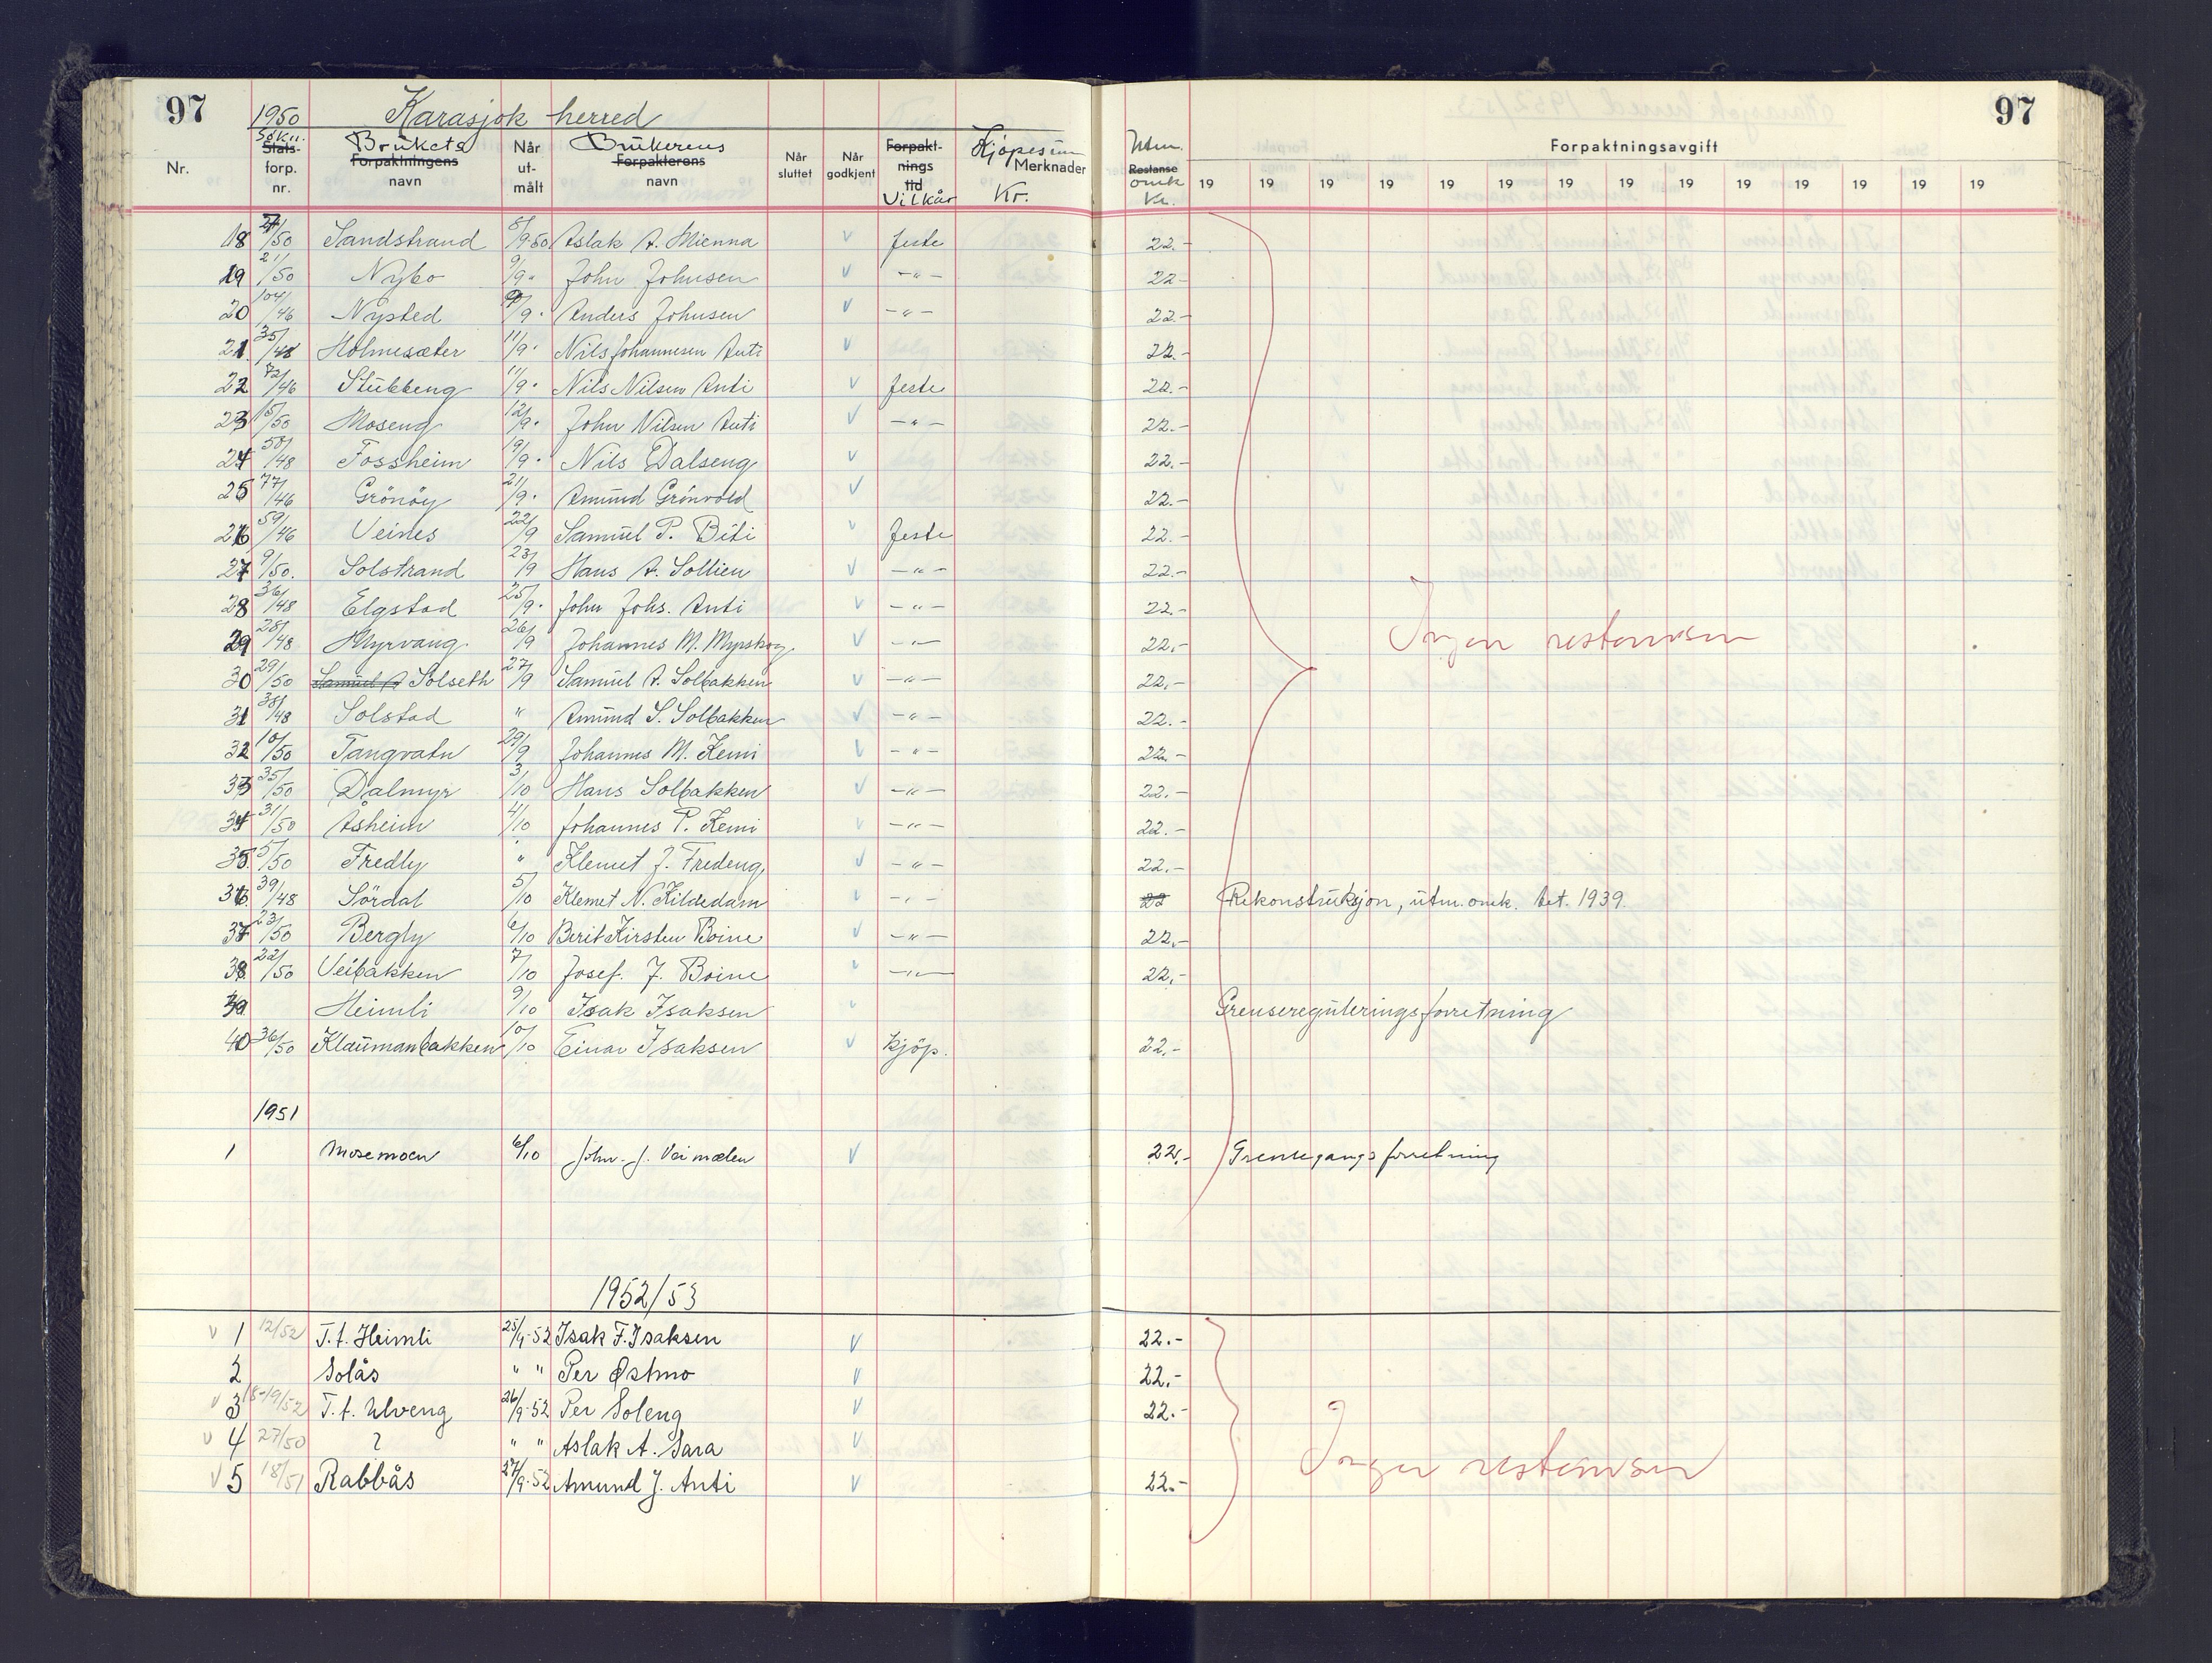 97 1950 Karasjok herred 97
Nr. Søkn. Stats-forp. nr. Brukets Forpaktningens navn Når utmålt Brukerens Forpakterens navn Når sluttet Når godkjent Forpaktnings tid Vilkår Kjøpesum Merknader Kr. Utm. Restanse omk Kr. Forpaktningsavgift
19 19 19 19 19 19 19 19 19 19 19 19 19 19
18 /50 Sandstrand 8/9-50 Aslak A. Mienna v feste 22.-
19 21/50 Nybo 9/9 " John Johnsen v -"- 22-
20 104/46 Nysted 9/9 " Anders Johnsen v -"- 22.-
21 35/48 Holmesæter 11/9 " Nils Johannesen Anti v 22.-
22 72/46 Stubbeng 11/9 " Nils Nilsen Anti v feste 22.-
23 15/50 Moseng 12/9 " John Nilsen Anti v -"- 22.-
24 50/48 Fossheim 19/9 " Nils Dalseng v 22.-
25 77/46 Grönöy 21/9 " Amund Grönvold v 22.-
26 59/46 Veines 22/9 Samuel P. Biti v feste 22.-
27 9/50. Solstrand 23/9 Hans A. Sollien v -"- 22.-
28 36/48 Elgstad 25/9 " John Johs. Anti v -"- 22.-
Ingen restanser
29 28/48 Myrvang 26/9 Johannes M. Myrskog v -"- 22.-
30 29/50 Samuel A Solseth 27/9 Samuel A. Solbakken v -"- 22.-
31 38/48 Solstad " Amund S. Solbakken v -"- 22.-
32 10/50 Tangvatn 29/9 Johannes M. Kemi v -"- 22.-
33 35/50 Dalmyr 3/10 Hans Solbakken v -"- 22.-
34 31/50 Åsheim 4/10 Johannes P. Kemi v -"- 22.-
35 5/50 Fredly " Klemet J. Fredeng v -"- 22.-
36 39/48 Sördal 5/10 Klemet N. Kildedam v -"- 22 Rekonstruksjon, utm. omk. bet. 1939.
37 23/50 Bergly 6/10 Berit Kirsten Boine v -"- 22.-
38 22/50 Veibakken 7/10 Josef J. Boine v -"- 22.-
39 Heimli 9/10 Isak Isaksen v Grensereguleringsforretning
40 36/50 Klaumanbakken 10/10 Einar Isaksen v kjöp. 22.-
1951
1 Mosemoen 6/10 John J. Veimælen v 22.- Grensegangsforretning
1952/53
v 1 12/52 T.t. Heimli 25/9-52 Isak F. Isaksen v 22.-
2 Solås " " Per Østmo v 22.-
v 3 18-19/52 T.t. Ulveng 26/9-52 Per Soleng v 22.-
v 4 27/50 ? " " Aslak A. Sara v
Ingen restanser
v 5 18/51 Rabbås 27/9-52 Amund J. Anti v 22.-